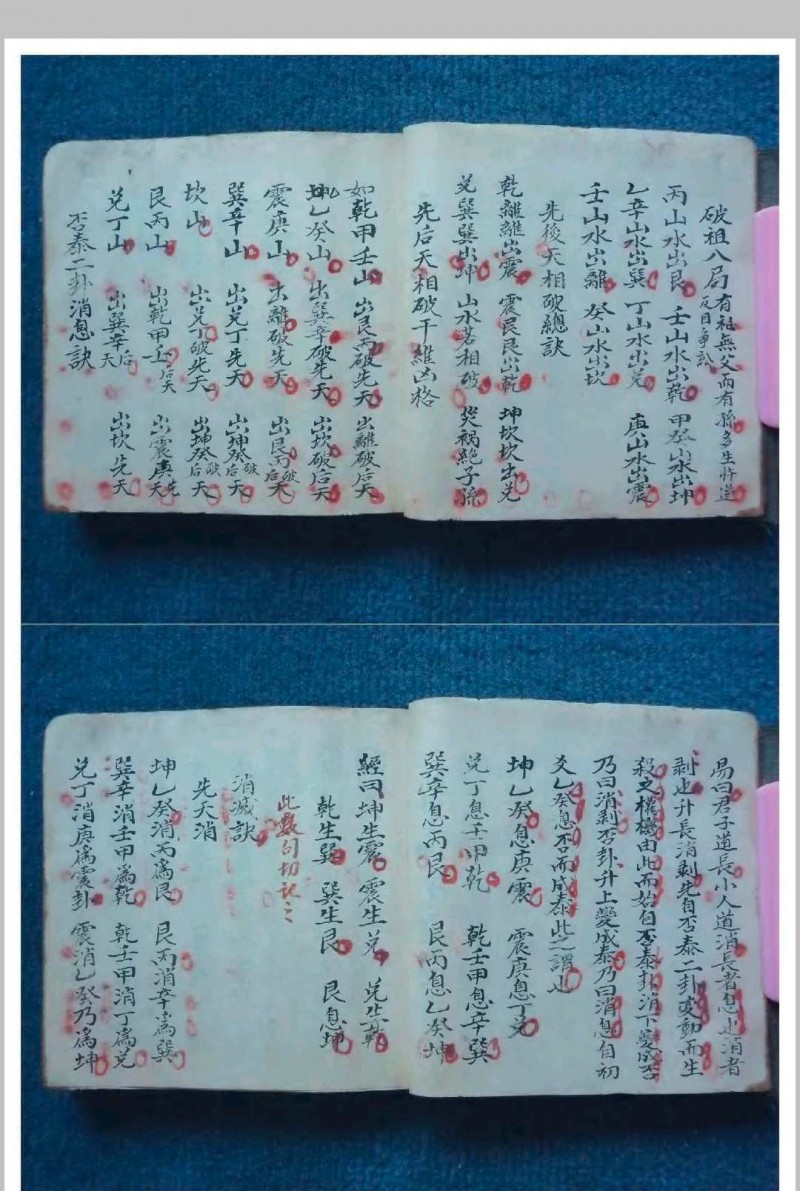 破祖八局 有祖無父而有孫多生忤逆
反目爭訟
丙山水出艮 壬山水出乾 甲癸山水出坤
乙辛山水出巽 丁山水出兌 庚山水出震
壬山水出離 癸山水出坎
先後天相破總訣
乾離離出震 震艮艮出乾 坤坎坎出兌
兌巽巽出坤 山水若相破 災禍絕子孫
先后天相破干維凶格
如乾甲壬山 出艮丙破先天 出離破后天
坤乙癸山 出巽辛破先天 出坎破后天
震庚山 出離破先天 出艮丙破后天
巽辛山 出兌丁先天 出坤癸破后天
坎山 出兌丁破先天 出坤癸破后天
艮丙山 出乾甲壬后天 出震庚先天
兌丁山 出巽辛后天 出坎先天
否泰二卦消息訣
易曰君子道長小人道消長者息也消者
剥也升長消剥先自否泰二卦変動而生
殺之權機由此而始自否泰卦消下變成否
乃曰消剥否卦升上變成泰乃曰消息自初
爻乙癸息否而成泰此之謂也
坤乙癸息庚震 震庚息丁兌
兌丁息壬甲乾 乾壬甲息辛巽
巽辛息丙艮 艮丙息乙癸坤
經曰坤生震 震生兌 兌生乾
乾生巽 巽生艮 艮息坤
此數句切記之
消滅訣
先天消
坤乙癸消丙為艮 艮丙消辛為巽
巽辛消壬甲為乾 乾壬甲消丁為兌
兌丁消庚為震卦 震消乙癸乃為坤